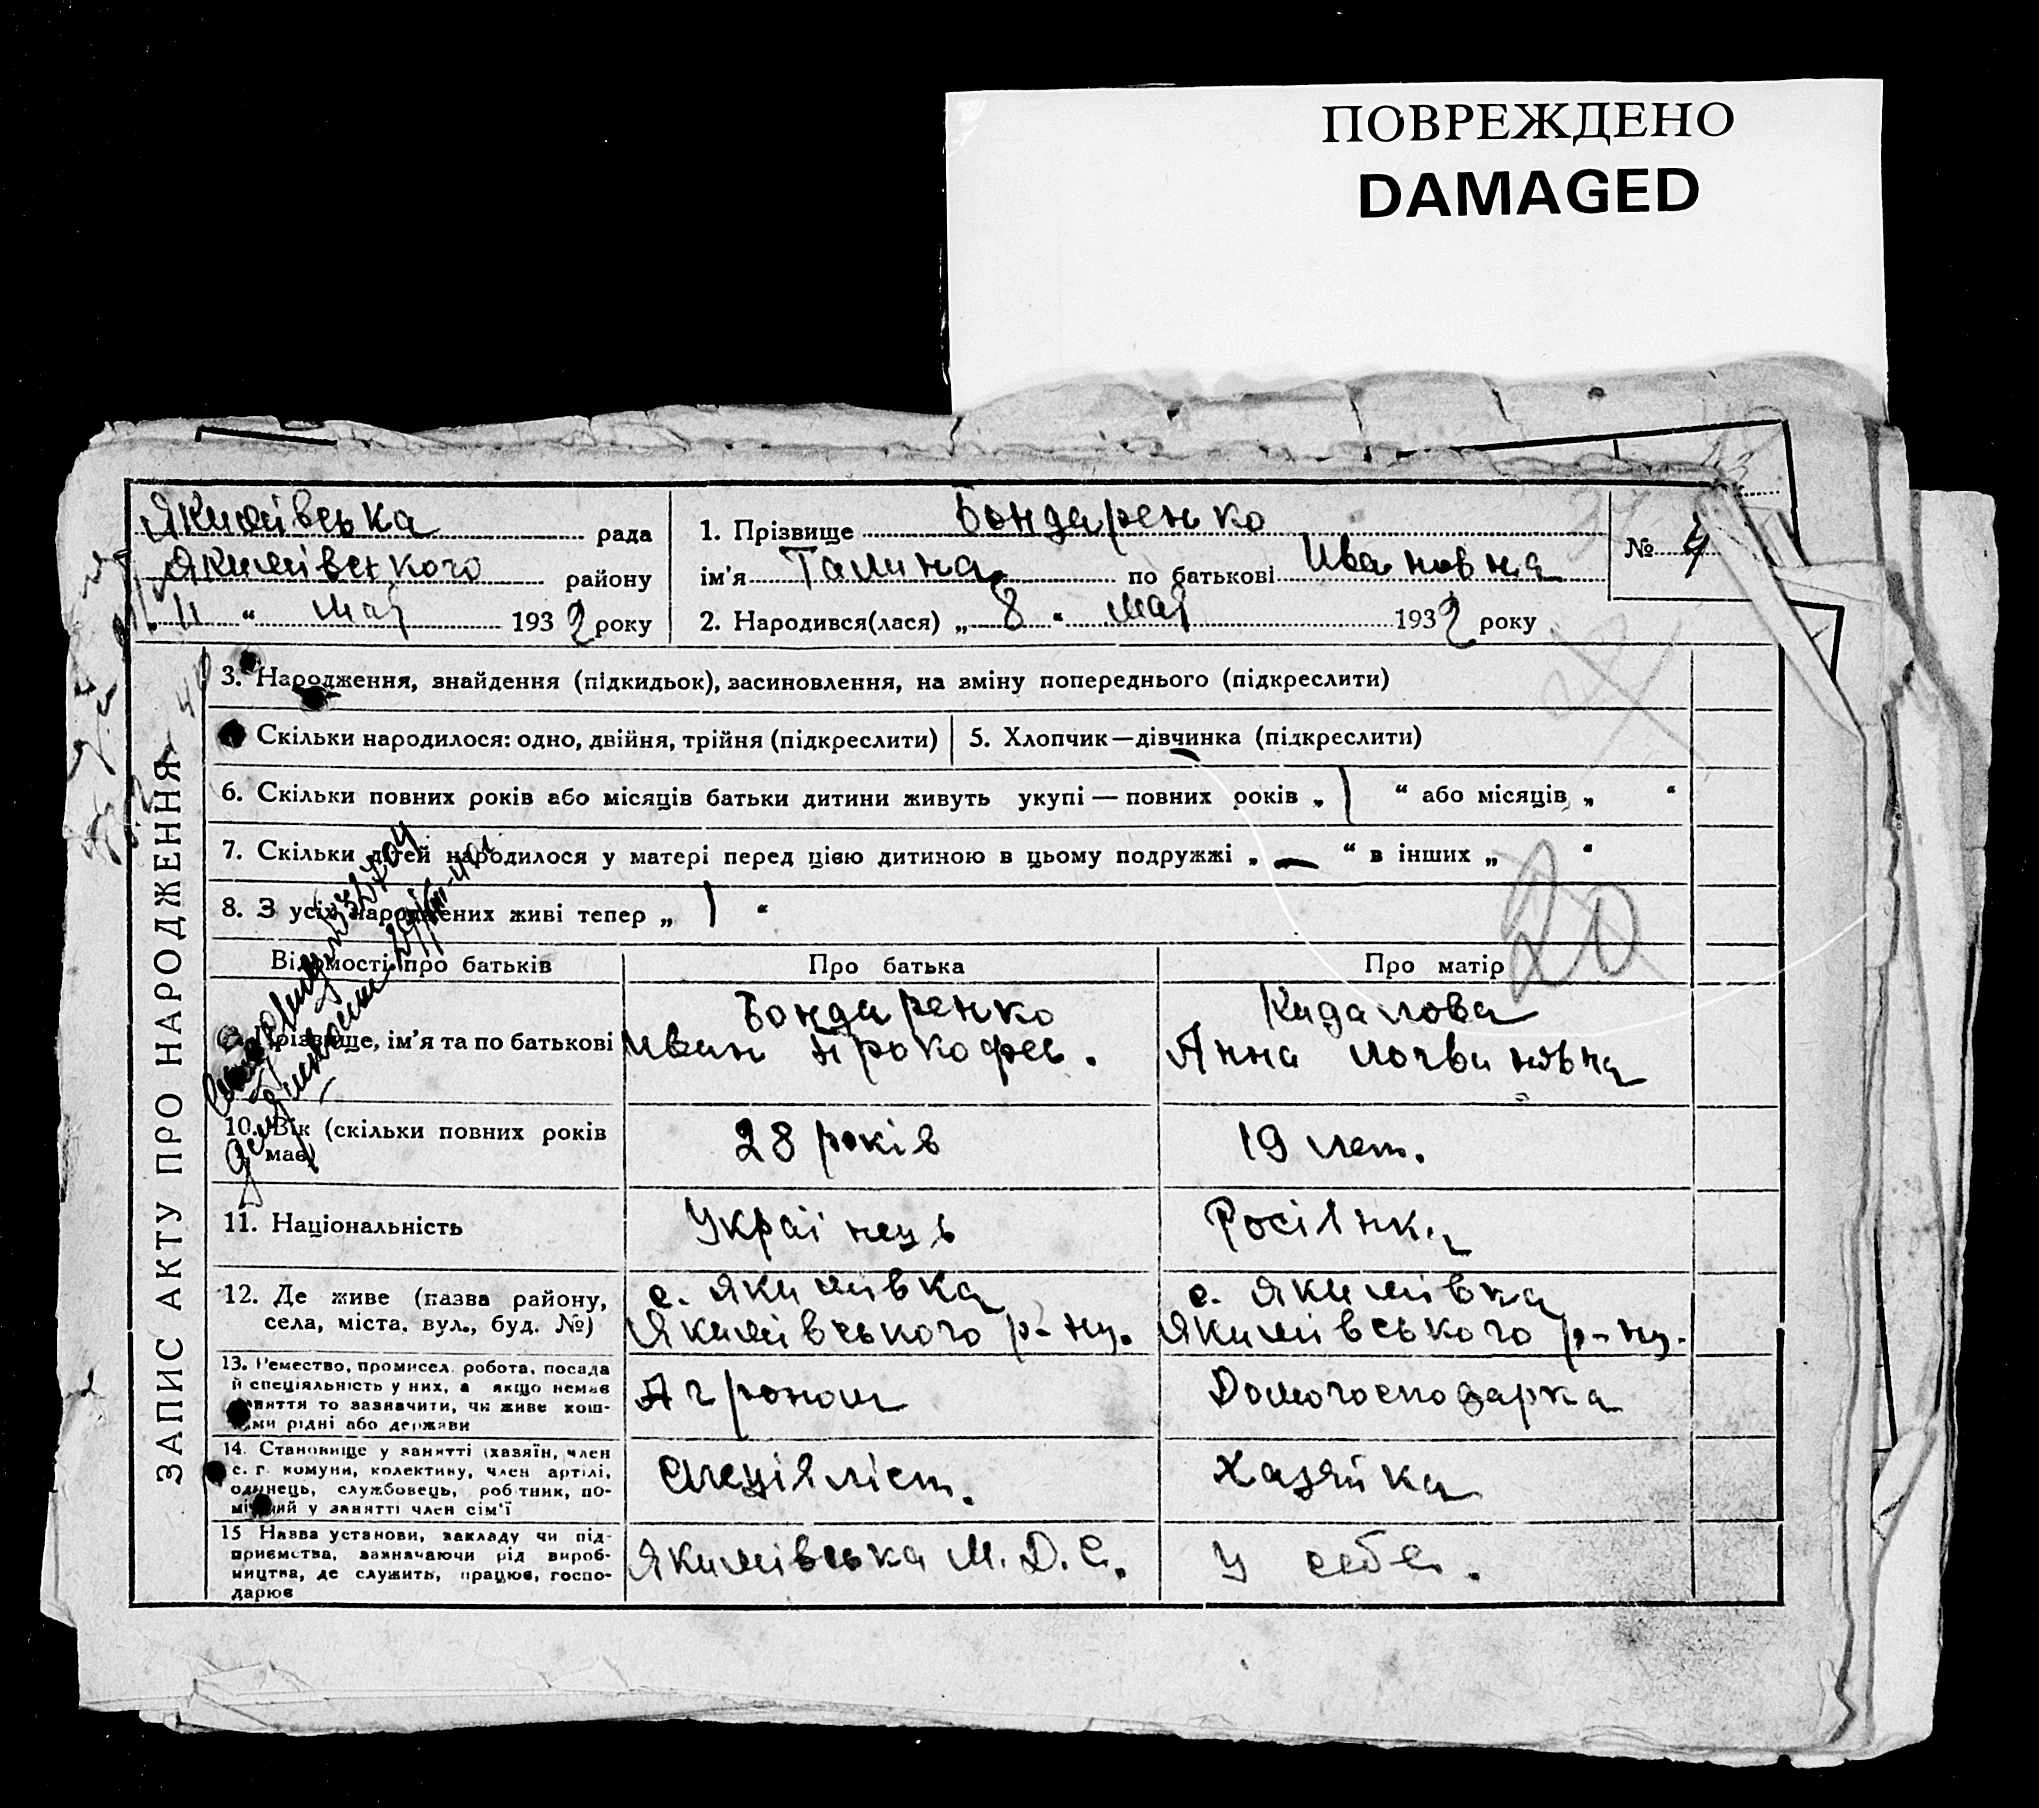 ПОВРЕЖДЕНО
DAMAGED
Якимівська рада
Якимівського району
„ 11 “ май 1932 року
1. Прізвище Бондаренко
ім'я Галина по батькові Ивановна
2. Народився(лася) „ 8 “ май 1932 року
№ 4
ЗАПИС АКТУ ПРО НАРОДЖЕННЯ
3. Народження, знайдення (підкидьок), засиновлення, на зміну попереднього (підкреслити)
Скільки народилося: одно, двійня, трійня (підкреслити)
5. Хлопчик—дівчинка (підкреслити)
6. Скільки повних років або місяців батьки дитини живуть укупі — повних років „ 1 “ або місяців „ “
7. Скільки дітей народилося у матері перед цією дитиною в цьому подружжі „ — “ в інших „ “
8. З усіх народжених живі тепер „ 1 “
20
Відомості про батьків
Про батька
Про матір
Прізвище, ім'я та по батькові
Бондаренко
Иван Прокофев.
Кидалова
Анна Логвиновна
10. Вік (скільки повних років
має)
28 років
19 лет.
11. Національність
Українець
Росіянка
12. Де живе (назва району,
села, міста, вул., буд. №)
с. Якимівка
Якимівського р-ну.
с. Якимівка
Якимівського р-ну.
13. Ремество, промисел, робота, посада
й спеціяльність у них, а якщо немає
заняття то зазначити, чи живе кош-
ами рідні або держави
Агроном
Домогосподарка
14. Становище у занятті (хазяїн, член
с. г. комуни, колективу, член артілі,
одинець, службовець, робітник, по-
мічний у занятті член сім'ї
спеціяліст.
Хазяйка
15 Назва установи, закладу чи під-
приємства, зазначаючи рід вироб-
ництва, де служить, працює, госпо-
дарює
Якимівська М.Д.С.
У себе.